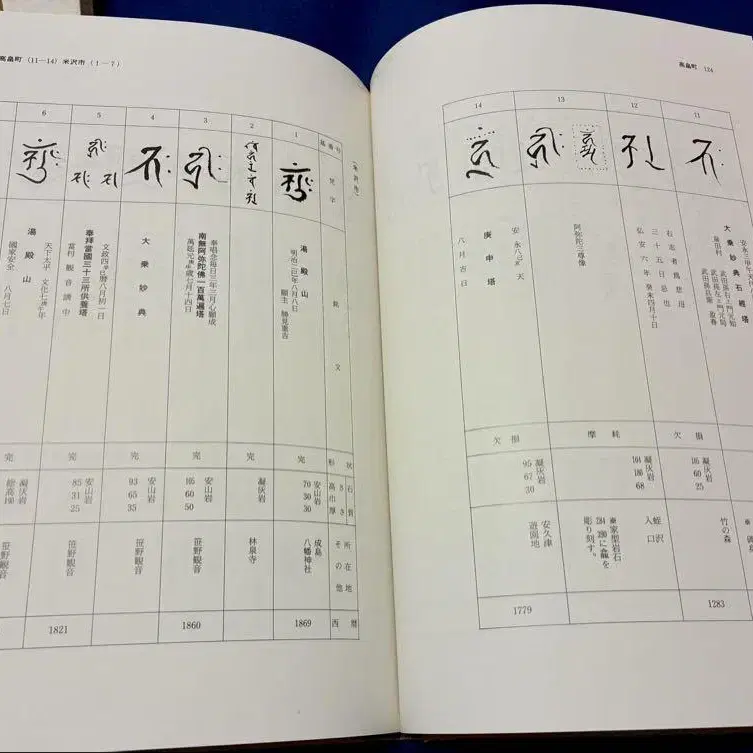 高畠町 124
11
12
13
14
大乗妙典石経塔
右志者為悲母
三十五日忌也
弘安六年 癸未四月十日
阿弥陀三尊像
庚申塔
八月吉日
欠損
摩耗
欠損
凝灰岩
60
25
凝灰岩
104
186
68
凝灰岩
95
67
30
竹の森
蛭沢
入口
※家型岩石
に龕を
彫り刻す。
安久津
遊園地
1283
1779
高畠町 (11—14) 米沢市 (1—7)
1
2
3
4
5
6
梵字
銘文
形状
石質
高さ
巾
厚さ
所在地
その他
西暦
湯殿山
明治二(巳)年八月八日
願主 勝見重吉
奉唱念毎日三年三月心願成
南無阿弥陀佛一百萬遍塔
万延元庚申歳七月十四日
大乗妙典
文政四辛巳暦八月初一日
奉拝當國三十三所供養塔
當村 観音講中
天下太平 文化七庚午年
湯殿山
國家安全 八月七日
完
完
完
完
完
完
安山岩
70
30
30
凝灰岩
安山岩
105
60
50
安山岩
93
65
35
安山岩
85
31
25
凝灰岩
総高198
成島
八幡神社
林泉寺
笹野観音
笹野観音
笹野観音
笹野観音
1869
1860
1821